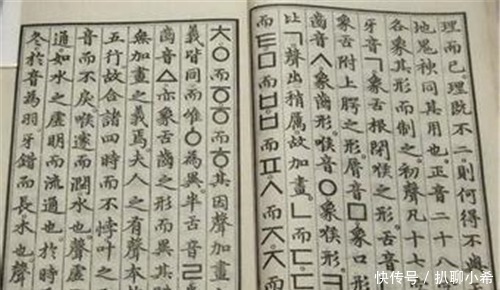 理而已。理既不二。則何得不與
地鬼神同其用也。正音二十八
各象其形而制之。初聲凡十七
牙音ㄱ。象舌根閉喉之形。舌音
象舌附上腭之形。脣音ㅁ。象口
齒音ㅅ。象齒形。喉音ㅇ。象喉形。
比ㄱ。聲出稍厲。故加畫。ㄴ而ㄷ。
而ㅌ。ㅁ而ㅂ。ㅂ而ㅍ。ㅅ而ㅈ。ㅈ
ㅊ。ㅇ而ㆆ。ㆆ而ㅎ。其因聲加畫
義皆同。而唯ㆁ為異。半舌音ㄹ
齒音ㅿ。亦象舌齒之形而異其
無加畫之義焉。夫人之有聲本
五行。故合諸四時而不悖。叶之
音而不戾。喉邃而潤。水也。聲虛
通。如水之虛明而流通也。於時
冬。於音為羽。牙錯而長。木也。聲
快传号／扒聊小希